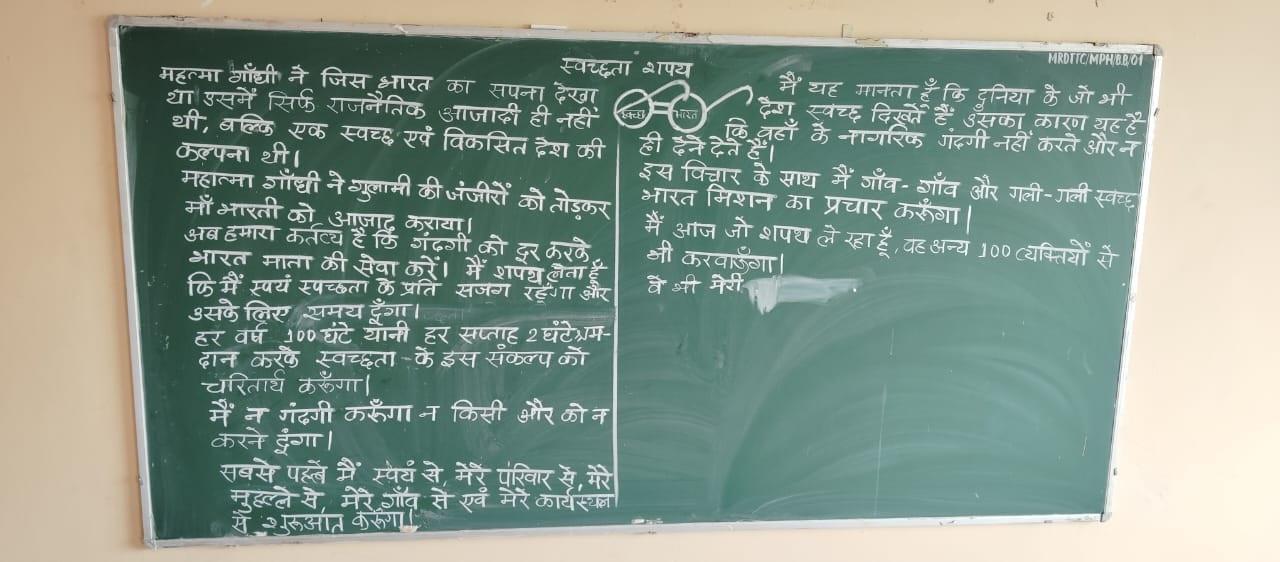 स्वच्छता शपथ
MRDTTC/MPH/BB/01
महत्मा गाँधी ने जिस भारत का सपना देखा
था उसमें सिर्फ राजनैतिक आजादी ही नहीं
थी, बल्कि एक स्वच्छ एवं विकासित देश की
कल्पना थी।
महात्मा गाँधी ने गुलामी की जंजीरों को तोड़कर
माँ भारती को आजाद कराया।
अब हमारा कर्तव्य है कि गंदगी को दूर करके
भारत माता की सेवा करें। मैं शपथ लेता हूँ
कि मैं स्वयं स्वच्छता के प्रति सजग रहूँगा और
उसके लिए समय दूँगा।
हर वर्ष 100 घंटे यानी हर सप्ताह 2 घंटे श्रम-
दान करके स्वच्छता के इस संकल्प को
चरितार्थ करूँगा।
मैं न गंदगी करूँगा न किसी और को न
करने दूंगा।
सबसे पहले मैं स्वयं से, मेरे परिवार से, मेरे
मुहल्ले से, मेरे गाँव से एवं मेरे कार्यस्थल
से शुरुआत करूँगा।
स्वच्छ भारत
मैं यह मानता हूँ कि दुनिया के जो भी
देश स्वच्छ दिखते हैं उसका कारण यह है
कि वहाँ के नागरिक गंदगी नहीं करते और न
ही देने देते हैं।
इस विचार के साथ मैं गाँव-गाँव और गली-गली स्वच्छ
भारत मिशन का प्रचार करूँगा।
मैं आज जो शपथ ले रहा हूँ, वह अन्य 100 व्यक्तियों से
भी करवाऊँगा।
वे भी मेरी